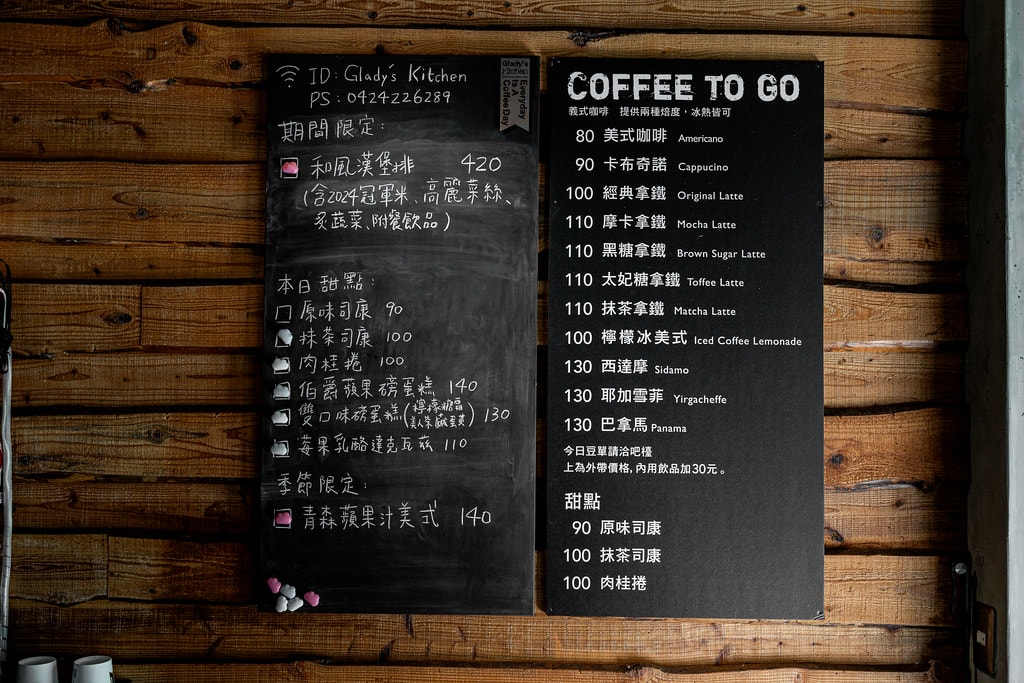 ID: Glady's Kitchen
PS: 0424226289
Glady's
Kitchen
Everyday
Is A
Coffee Day
期間限定:
和風漢堡排 420
(含2024冠軍米、高麗菜絲、
炙蔬菜、附餐飲品)
本日甜點:
原味司康 90
抹茶司康 100
肉桂捲 100
伯爵蘋果磅蛋糕 140
雙口味磅蛋糕(檸檬糖霜 130
莓果乳酪達克瓦茲 110
季節限定:
青森蘋果汁美式 140
COFFEE TO GO
義式咖啡 提供兩種焙度，冰熱皆可
80 美式咖啡 Americano
90 卡布奇諾 Cappucino
100 經典拿鐵 Original Latte
110 摩卡拿鐵 Mocha Latte
110 黑糖拿鐵 Brown Sugar Latte
110 太妃糖拿鐵 Toffee Latte
110 抹茶拿鐵 Matcha Latte
100 檸檬冰美式 Iced Coffee Lemonade
130 西達摩 Sidamo
130 耶加雪菲 Yirgacheffe
130 巴拿馬 Panama
今日豆單請洽吧檯
上為外帶價格，內用飲品加30元。
甜點
90 原味司康
100 抹茶司康
100 肉桂捲